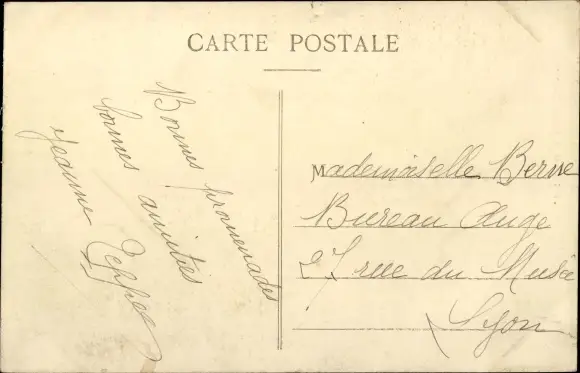 CARTE POSTALE
Bonnes promenades
bonnes amitiés
Jeanne
Mademoiselle Berne
Bureau Auge
27 rue du Musée
Lyon